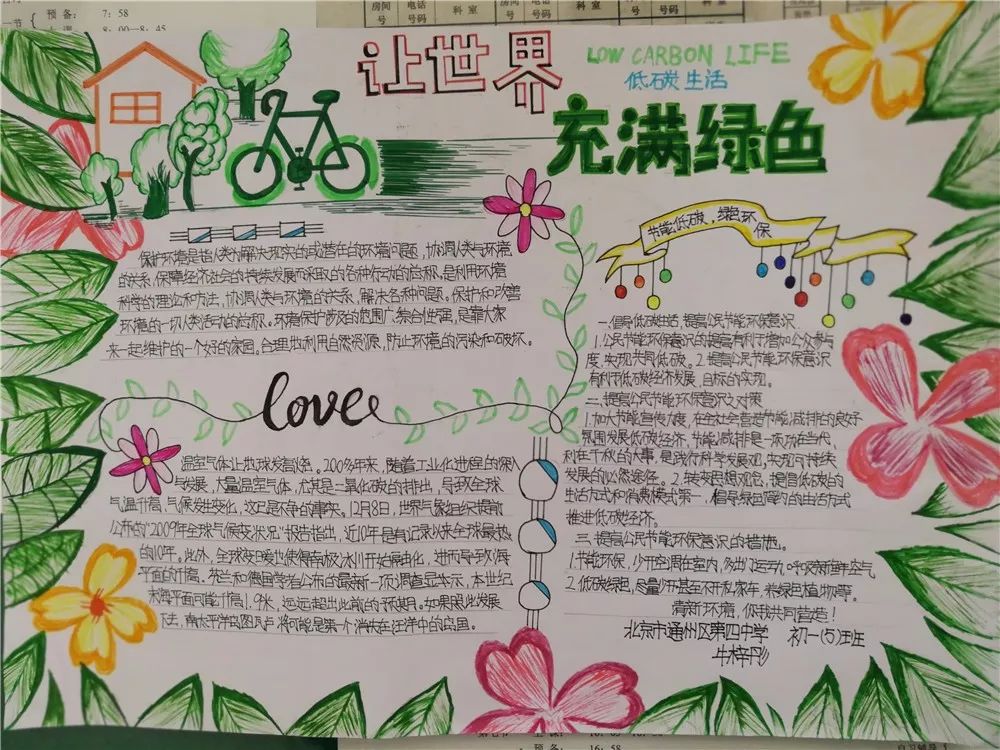 预备： 7：58
8：00—8：45
房间号 电话号码 科室 房间号 电话号码 科室
让世界
LOW CARBON LIFE
低碳生活
充满绿色
节能低碳，绿色环保
保护环境是指人类为解决现实的或潜在的环境问题，协调人类与环境
的关系，保障经济社会的持续发展而采取的各种行动的总称。是利用环境
科学的理论和方法，协调人类与环境的关系，解决各种问题。保护和改善
环境的一切人类活动的总称。环境保护涉及的范围广，综合性强，是靠大家
来一起维护的一个好的家园。合理地利用自然资源，防止环境的污染和破坏。
love
温室气体让地球发高烧。200多年来，随着工业化进程的深入
与发展，大量温室气体，尤其是二氧化碳的排出，导致全球
气温升高，气候发生变化，这已是不争的事实。12月8日，世界气象组织提前
公布的“2009年全球气候变状况”报告指出，近10年是有记录以来全球最热
的10年。此外，全球变暖也使得南极冰川开始融化，进而导致海
平面的升高。荷兰和德国学者公布的最新一项调查显示，本世纪
末海平面可能升高1.9米，远远超出此前的预期。如果照此发展
下去，南太平洋岛国 将可能是第一个消失在汪洋中的岛国。
一.倡导低碳生活，提高公民节能环保意识.
1.公民节能环保意识的提高有利于增加公众参与
度，实现共同低碳。2.提高公民节能环保意识
有利于低碳经济发展，目标的实现。
二.提高公民节能环保意识之对策
1.加大节能宣传力度，在全社会营造节能减排的良好
氛围发展低碳经济，节能减排是一项功在当代，
利在千秋的大事，是践行科学发展观，实现可持续
发展的必然途径。2.转变思想观念，提倡低碳的
生活方式和消费模式第一，倡导绿色简约的生活方式
推进低碳经济。
三.提高公民节能环保意识的措施。
1.节能环保，少开空调在室内，多出门运动，呼吸新鲜空气
2.低碳绿色，尽量少开甚至不开私家车，养绿色植物等。
清新环境，你我共同营造！
北京市通州区第四中学 初一(5)班
牛梓彤
预备： 16：58